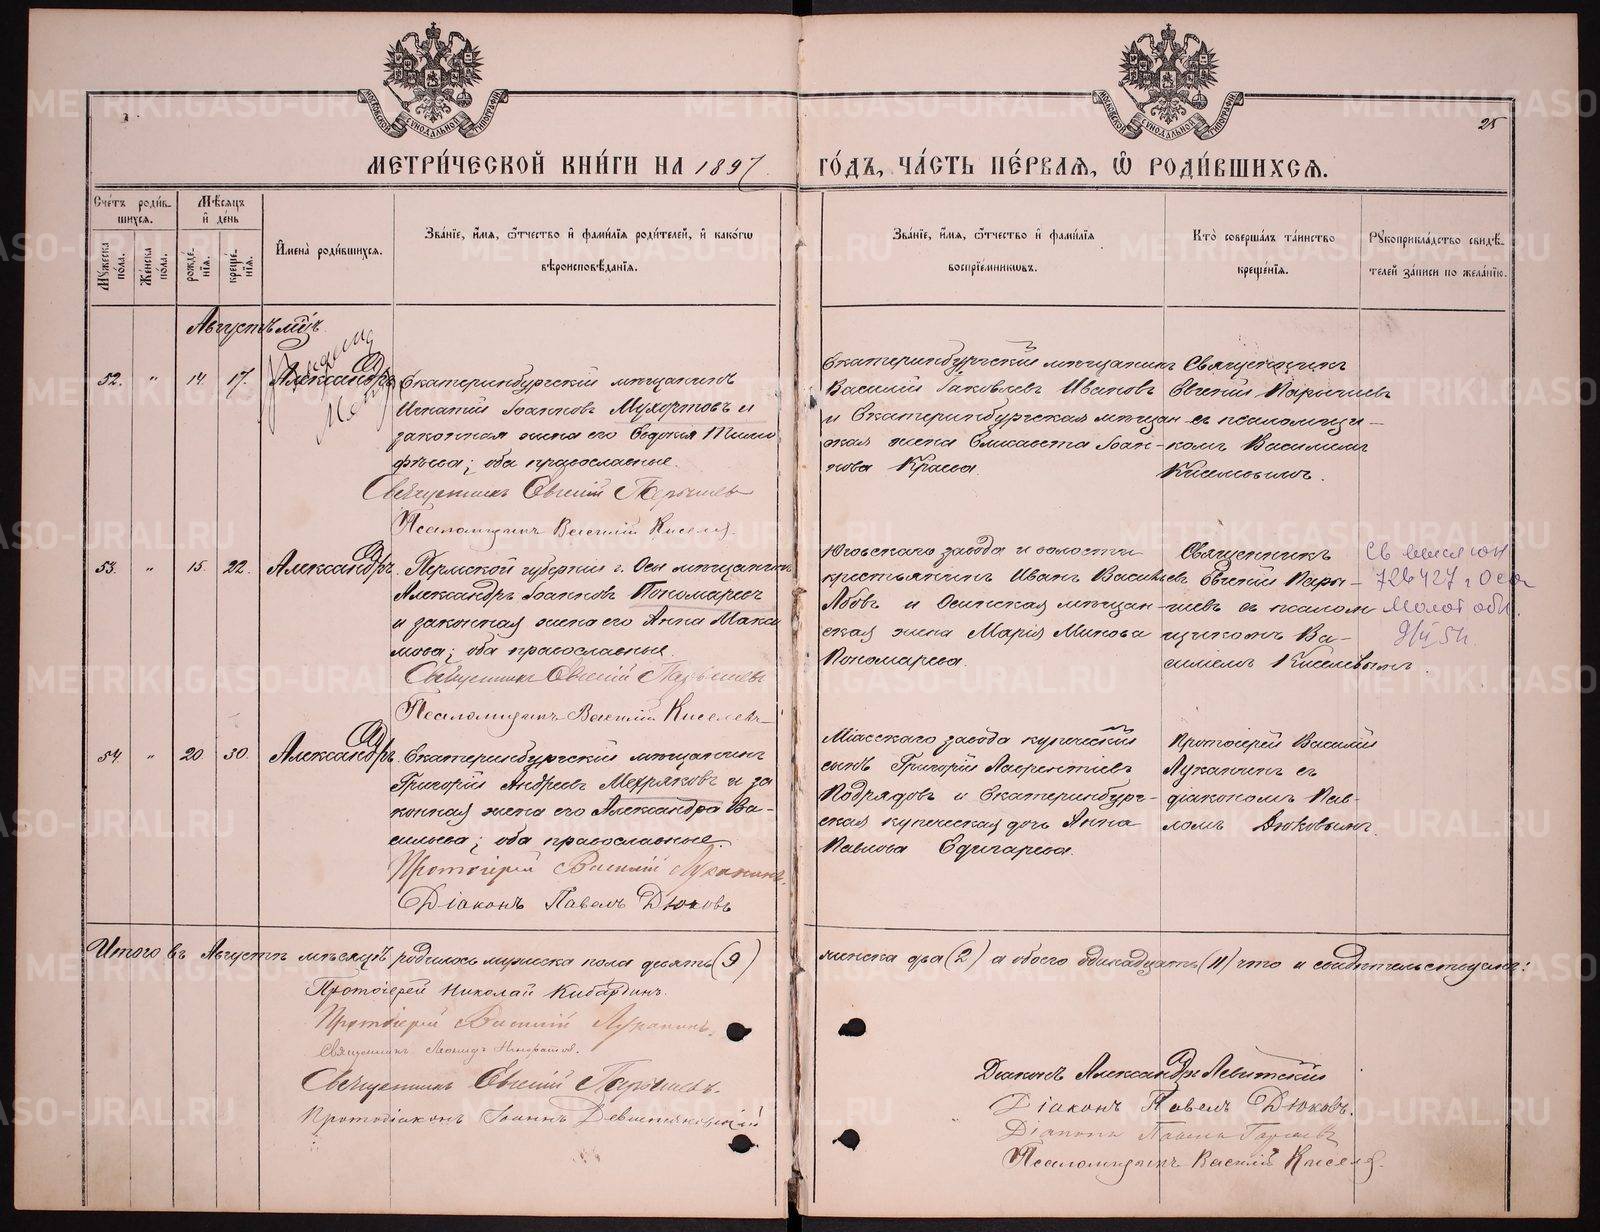 25
МЕТРИ́ЧЕСКОЙ КНИ́ГИ НА 1897 ГО́ДЪ, ЧА́СТЬ ПЕ́РВАЯ, Ѡ РОДИ́ВШИХСЯ.
Сче́тъ роди́вшихся.
Му́жеска по́ла.
Же́нска по́ла.
Мѣ́сяцъ и҆ де́нь
рожде́нїя.
креще́нїя.
И҆мена̀ роди́вшихся.
Зва́нїе, и҆́мя, ѻ҆́тчество и҆ фами́лїя роди́телей, и҆ како́гѡ
вѣроисповѣ́данїя.
Зва́нїе, и҆́мя, ѻ҆́тчество и҆ фами́лїя
воспрїе́мникѡвъ.
Кто̀ соверша́лъ та́инство
креще́нїя.
Рꙋкоприкла́дство свидѣ́телей за́писи по жела́нїю.
Августъ мцъ
52. " 14. 17. Александръ
Екатеринбургскій мѣщанинъ
Игнатій Іоанновъ Мухортовъ и
законная жена его Евдокія Тимо
фѣева; оба православные.
Священникъ Евгеній Парышевъ
Псаломщикъ Василій Киселев
Екатеринбургскій мѣщанинъ
Василій Іаковлевъ Ивановъ
и Екатеринбургская мѣщан
ская жена Елисавета Іоан-
нова Краева.
Священникъ
Евгеній Парышевъ
съ псаломщи-
комъ Василіемъ
Киселевымъ.
53. " 15. 22. Александръ.
Пермской губерніи г. Осы мѣщанинъ
Александръ Іоанновъ Пономаревъ
и законная жена его Анна Макси
мова; оба православные.
Священникъ Евгеній Парышевъ
Псаломщикъ Василій Киселевъ
Юговскаго завода и волости
крестьянинъ Иванъ Васильевъ
и Осинская мѣщан-
ская жена Марія
Пономарева.
Священникъ
Евгеній Пары-
шевъ съ псалом
щикомъ Ва-
силіемъ Киселевымъ
726427 г Оса
Молот обл.
54. " 20. 30. Александръ.
Екатеринбургскій мѣщанинъ
Григорій Андреевъ Мехряковъ и за
конная жена его Александра Ва-
сильева; оба православные.
Протоіерей Василій Луканинъ.
Діаконъ Павелъ Дюковъ
Міасскаго завода купеческій
сынъ Григорій Лаврентіевъ
Подрядовъ и Екатеринбург-
ская купеческая дочь Анна
Павлова
Протоіерей Василій
Луканинъ съ
діакономъ Пав-
ломъ Дюковымъ.
Итого въ Августѣ мѣсяцѣ родилось мужеска пола девять (9) женска два (2) а обоего одинадцать (11) что и свидѣтельствуемъ:
Протоіерей Николай Кибардинъ.
Протоіерей Василій Луканинъ.
Священникъ Леонидъ Игноратов.
Священникъ Евгеній Парышевъ.
Протодіаконъ Іоаннъ
Діаконъ Александръ Левитскій
Діаконъ Павелъ Дюковъ.
Діаконъ
Псаломщикъ Василій Киселев.
METRIKI.GASO-URAL.RU